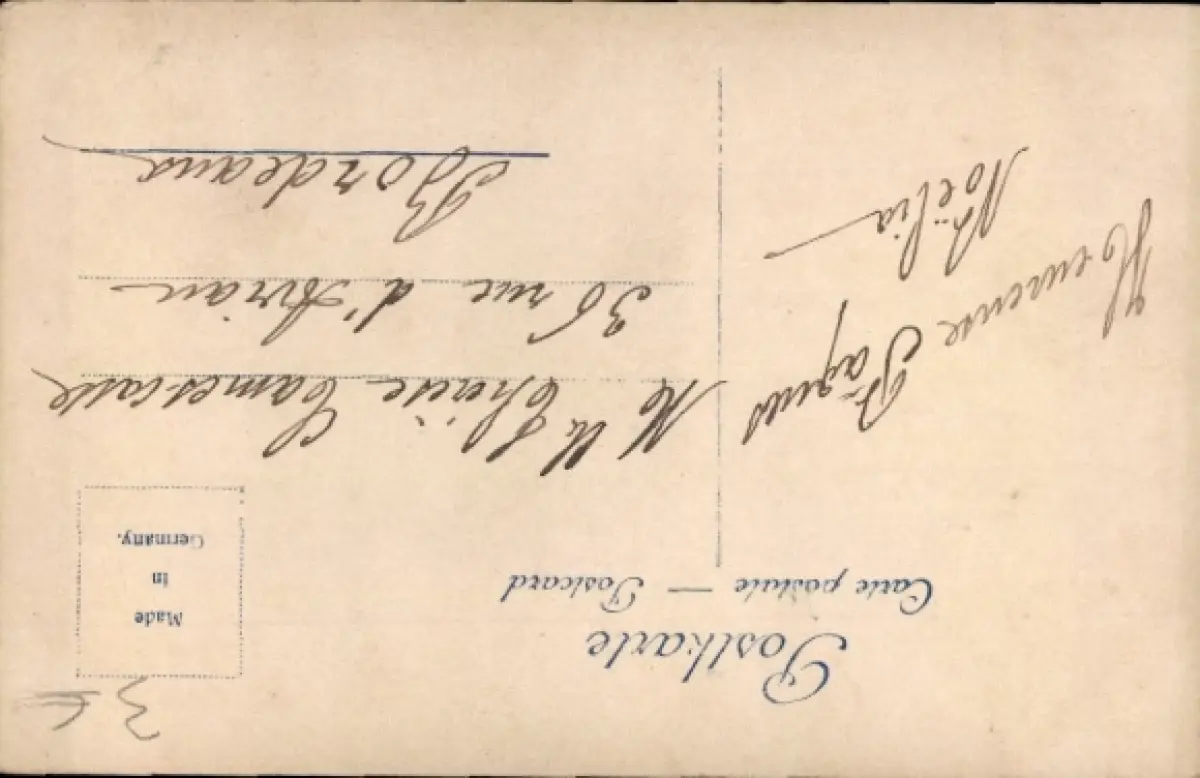 Postkarte
Carte postale — Postcard
Made
in
Germany.
Heureuse Pâques
Noëlia
Mlle Thérèse
36 rue d'Arvian
Bordeaux
3 €